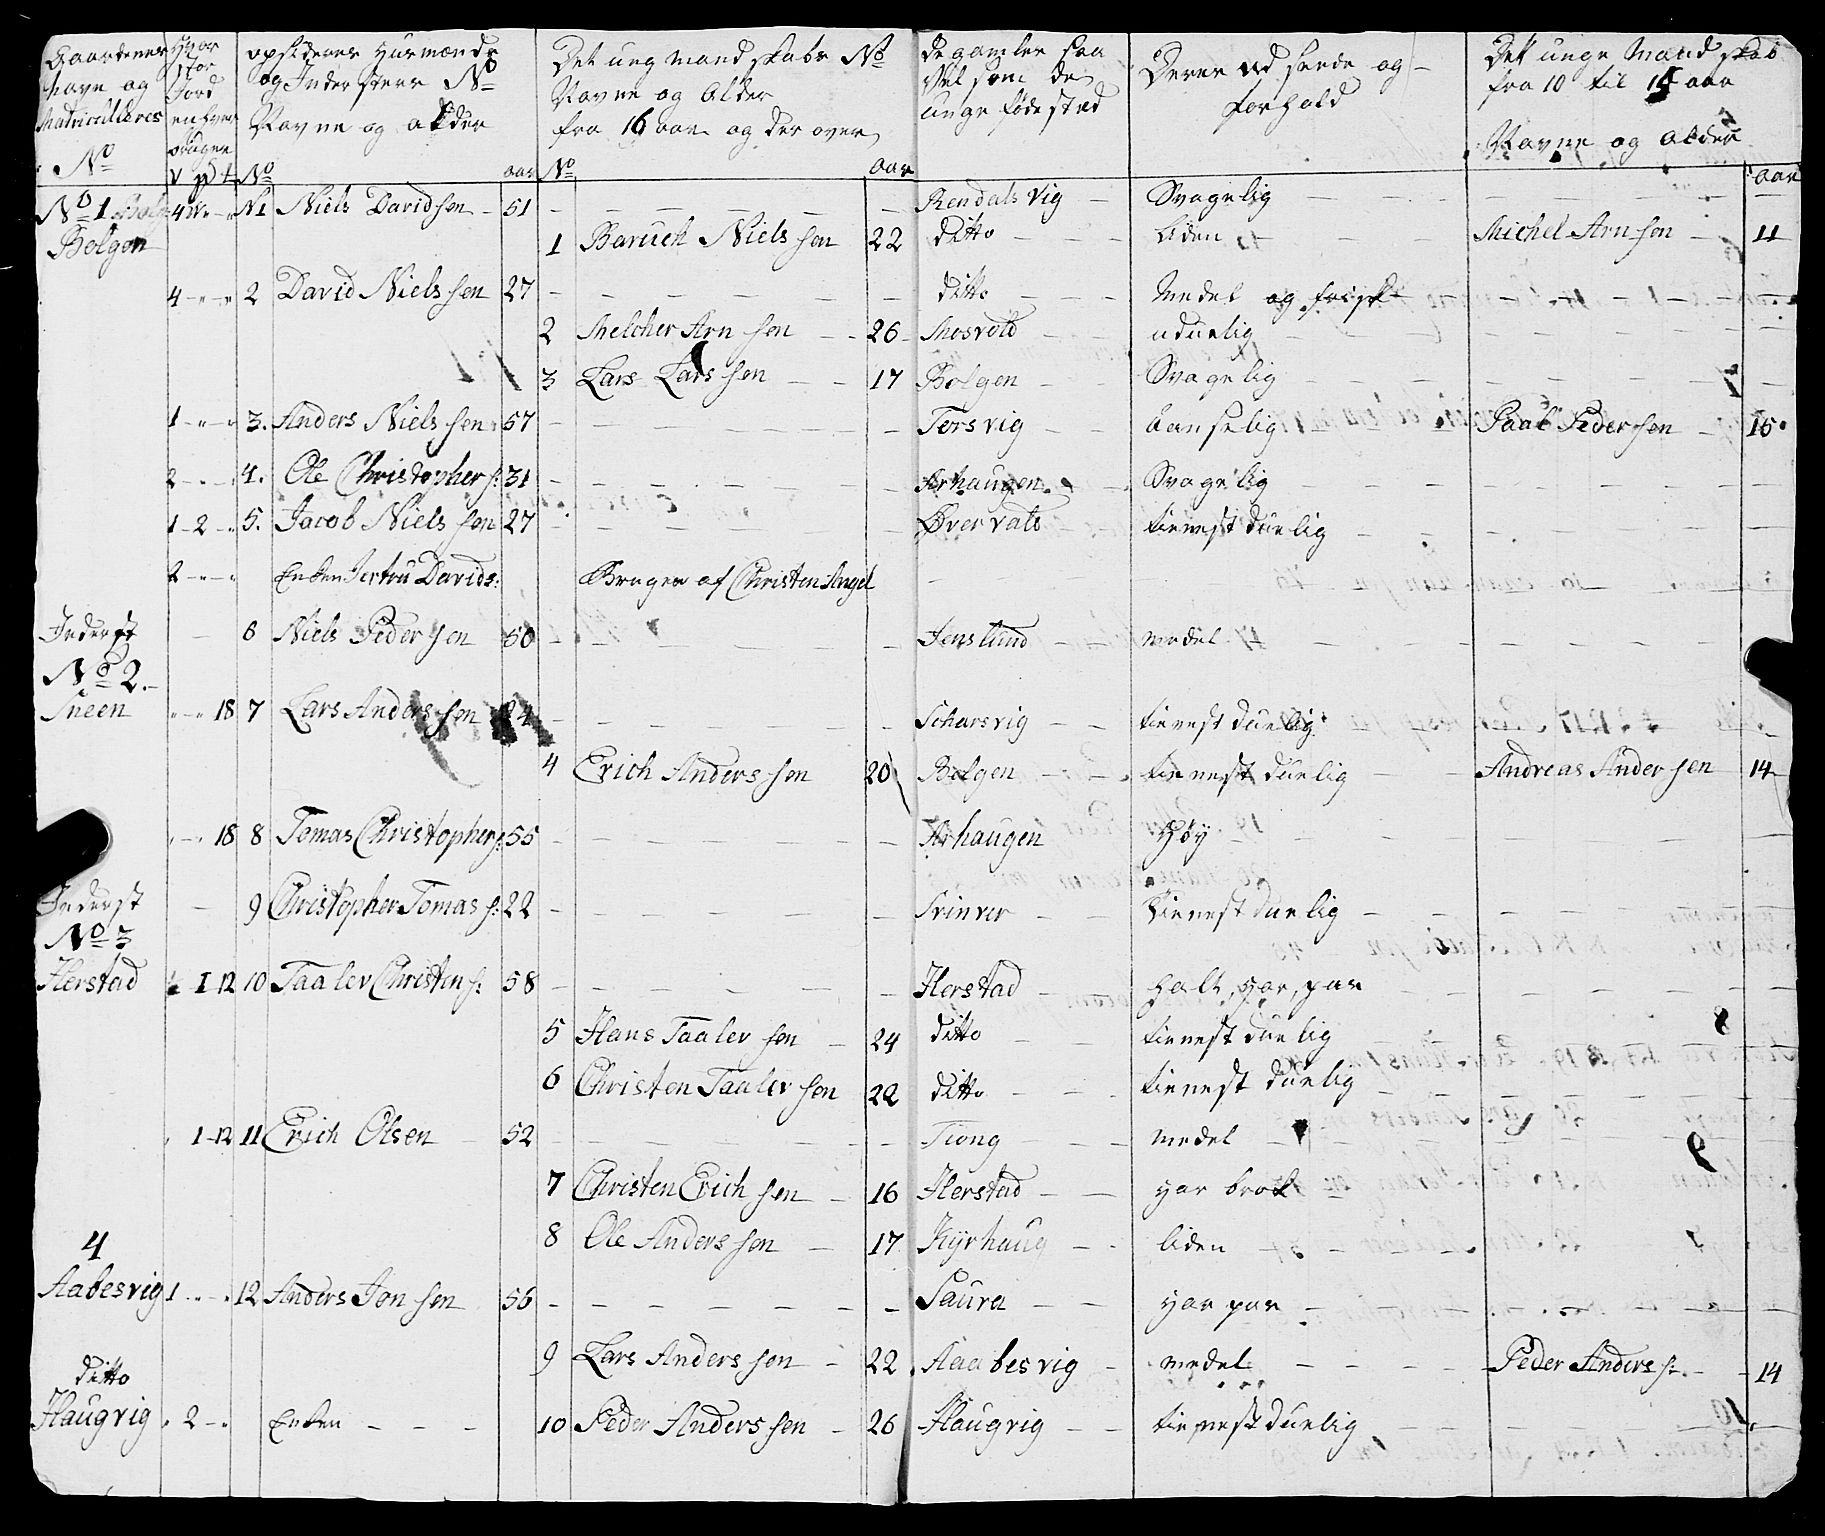 Gaardenes Navn og Matriculleres No
Hvor stor Jord enhver bruger V pd +
opsidenes Husmænds og Indersters No Navne og alder No aar
Det ung mandskabs No Navne og Alder fra 16 aar og der over No aar
de gamles saa vel som de unges fødested
Deres ud seende og forhold
Det unge Mandskab fra 10 til 15 aar Navne og alder aar
No 1 4 N1 Niels Davidsen 51 Rendalsvig Svagelig
Bolgen 1 Baruch Nielssen 22 ditto liden Michel Arnsen 11
4 2 David Nielssen 27 ditto Medel og frisk
2 Melcher Arnsen 26 Mosvold uduelig
3 Lars Larssen 17 Bolgen Svagelig
1 3. Anders Nielssen 57 Torsvig Paal Pedersen 15
2 4. Ole Christophers: 31 Arhaugen Svagelig
1-2 5. Jacob Nielssen 27 Øvervats tienestduelig
2 Enken Jertru Davids: Bruges af Christen Angel
Inderst 6 Niels Pedersen 50 Jenslund medel
No 2.
Sneen 18 7 Lars Anderssen 24 Scharsvig tienestduelig
4 Erich Anderssen 20 Bolgen tienestduelig Andreas Andersen 14
18 8 Tomas Christophers: 55 Arhaugen Høy
Inderst 9 Christopher Tomas s: 22 Srinver tienestduelig
No 3
Herstad 1 12 10 Taalev Christens: 58 Herstad halt, har, par
5 Hans Taalevsen 24 ditto tienestduelig
6 Christen Taalevsen 22 ditto tienestduelig
1-12 11 Erich Olsen 52 Tiong medel
7 Christen Erichsen 16 Herstad har brok
8 Ole Anderssen 17 Kyrhaug liden
4
Aabesvig 1 12 Anders Jonsen 56 Saura har par
9 Lars Anderssen 22 Aaabesvig medel Peder Anders s: 14
ditto
Haugvig 2 Enken 10 Peder Anderssen 26 Haugvig tienestduelig